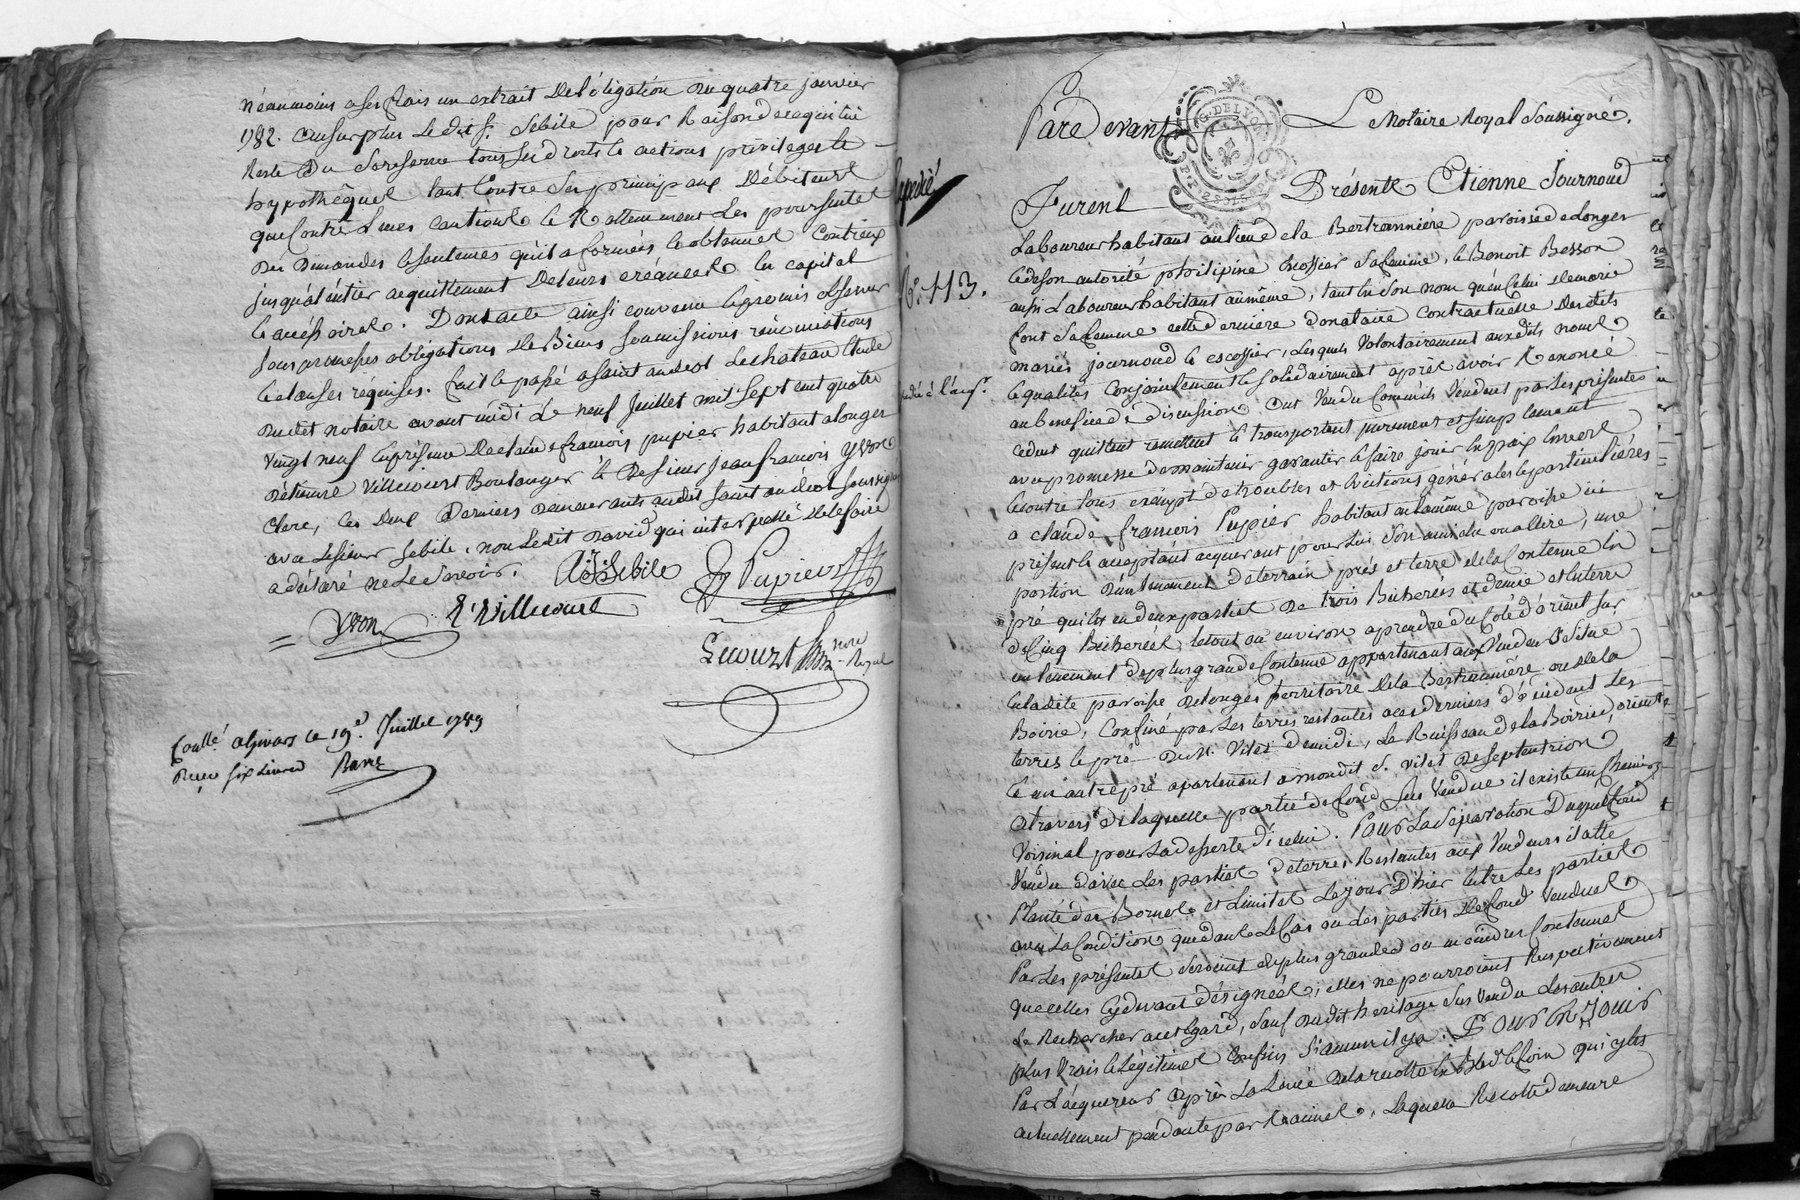 néanmoins a ses frais un extrait de l'obligation du quatre janvier
1782. au surplus le dit s.r Sebile pour Raison de ce qui lui
Reste du Se reserve tous ses droits & actions privileges &
hypothêques tant Contre Ses principaux Débiteurs
que Contre Leurs cautions & Notamment Les poursuites
des Demandes & Sentences qu'il a formées & obtenues Contr'eux
jusqu'a l'entier acquittement de leurs créances En capital
& accéssoires. Dont acte ainsi convenu & promis observer
Sous promesses obligations de Biens Soumissions rénonciations
& clauses réquises. fait & passé a Saint andeol Le chateau Etude
dudit notaire avant midi Le neuf Juillet mil Sept cent quatre
vingt neuf En présence de claude francois pupier habitant a longes
d'étienne Villecourt Boulanger & de Sieur Jean francois Yvon
Clerc, Les Deux Derniers demeurants audit Saint andéol Soussignés
avec Le Sieur Sebile, non Ledit David qui interpellé de le faire
a déclaré ne Le Savoir.
Sebile Pupier
Yvon E. Villecourt
Lecourt not.re Royal
Con.llé a Givors Le 19.e Juillet 1789
Reçu Six Livres
Expedié
N.o 113.
G. DE LYON
Pardevant Le Notaire Royal Soussigné,
Furent Présents Etienne Journoud
Laboureur habitant au lieu de la Bertrannière paroisse de Longes
& de son autorité philipine Escossier Sa femme, & Benoit Besson
aussi Laboureur habitant au même, tant En Son nom qu'en Celui de marie
font Sa femme cette derniére donataire contractuelle desdits
mariés journoud & escossier, Lesquels Volontairement auxdits noms
& qualités Conjointement & Solidairement après avoir Renoncé
au benefice de discussion Ont Vendu Comm'ils Vendent par Les présentes
cedent quittent remettent & transportent purement et simplement
avec promesse de maintenir garantir & faire jouir En paix Envers
& contre tous exempt de troubles et évictions générales & particulières
a claude francois Pupier habitant en la même paroisse ici
présent & acceptant acquereur pour Lui Son ami élu ou a élire, une
portion d'un tenement de terrain prés et terre de la Contenue En
pré qui Est en deux parties de trois Bicherées et demie et En terre
de Cinq Bicherées, le tout ou environ a prendre du Coté d'orient Sur
un tenement de plus grande Contenue appartenant aux Vendeurs & Situé
En la dite paroisse de Longes territoire de la Bertrannière ou de la
Boirie, Confiné par Les terres restantes a ces derniers d'occident Les
terres & pré du s.r Vitet de midi, Le Ruisseau de la Boirie, orient,
& un autre pré apartenant a mondit s. vitet de Septentrion
a travers de laquelle partie de fond Sus Vendue il existe un Chemin
Voisinal pour La desserte d'icelui. Pour La Séparation Duquel fond
Vendu d'avec Les parties de terres Restantes aux Vendeurs il a été
Planté des Bornes et Limites Le jour D'hier Entre Les parties
avec La Condition que dans Le Cas ou des parties de fond Vendues
Par Les présentes Seroient de plus grandes ou moindres Contenues
que celles Cydevant désignées, elles ne pourroient Respectivement
Se Rechercher a cet égard, Sauf dudit heritage Sus Vendu Les autres
plus Vrais & Légitimes Confins Si aucun il y a. Pour En Jouir
Par L'acquereur après La Levée de la recolte En Bled & foin qui y est
actuellement pendante par Racines, Laquelle Recolte demeure